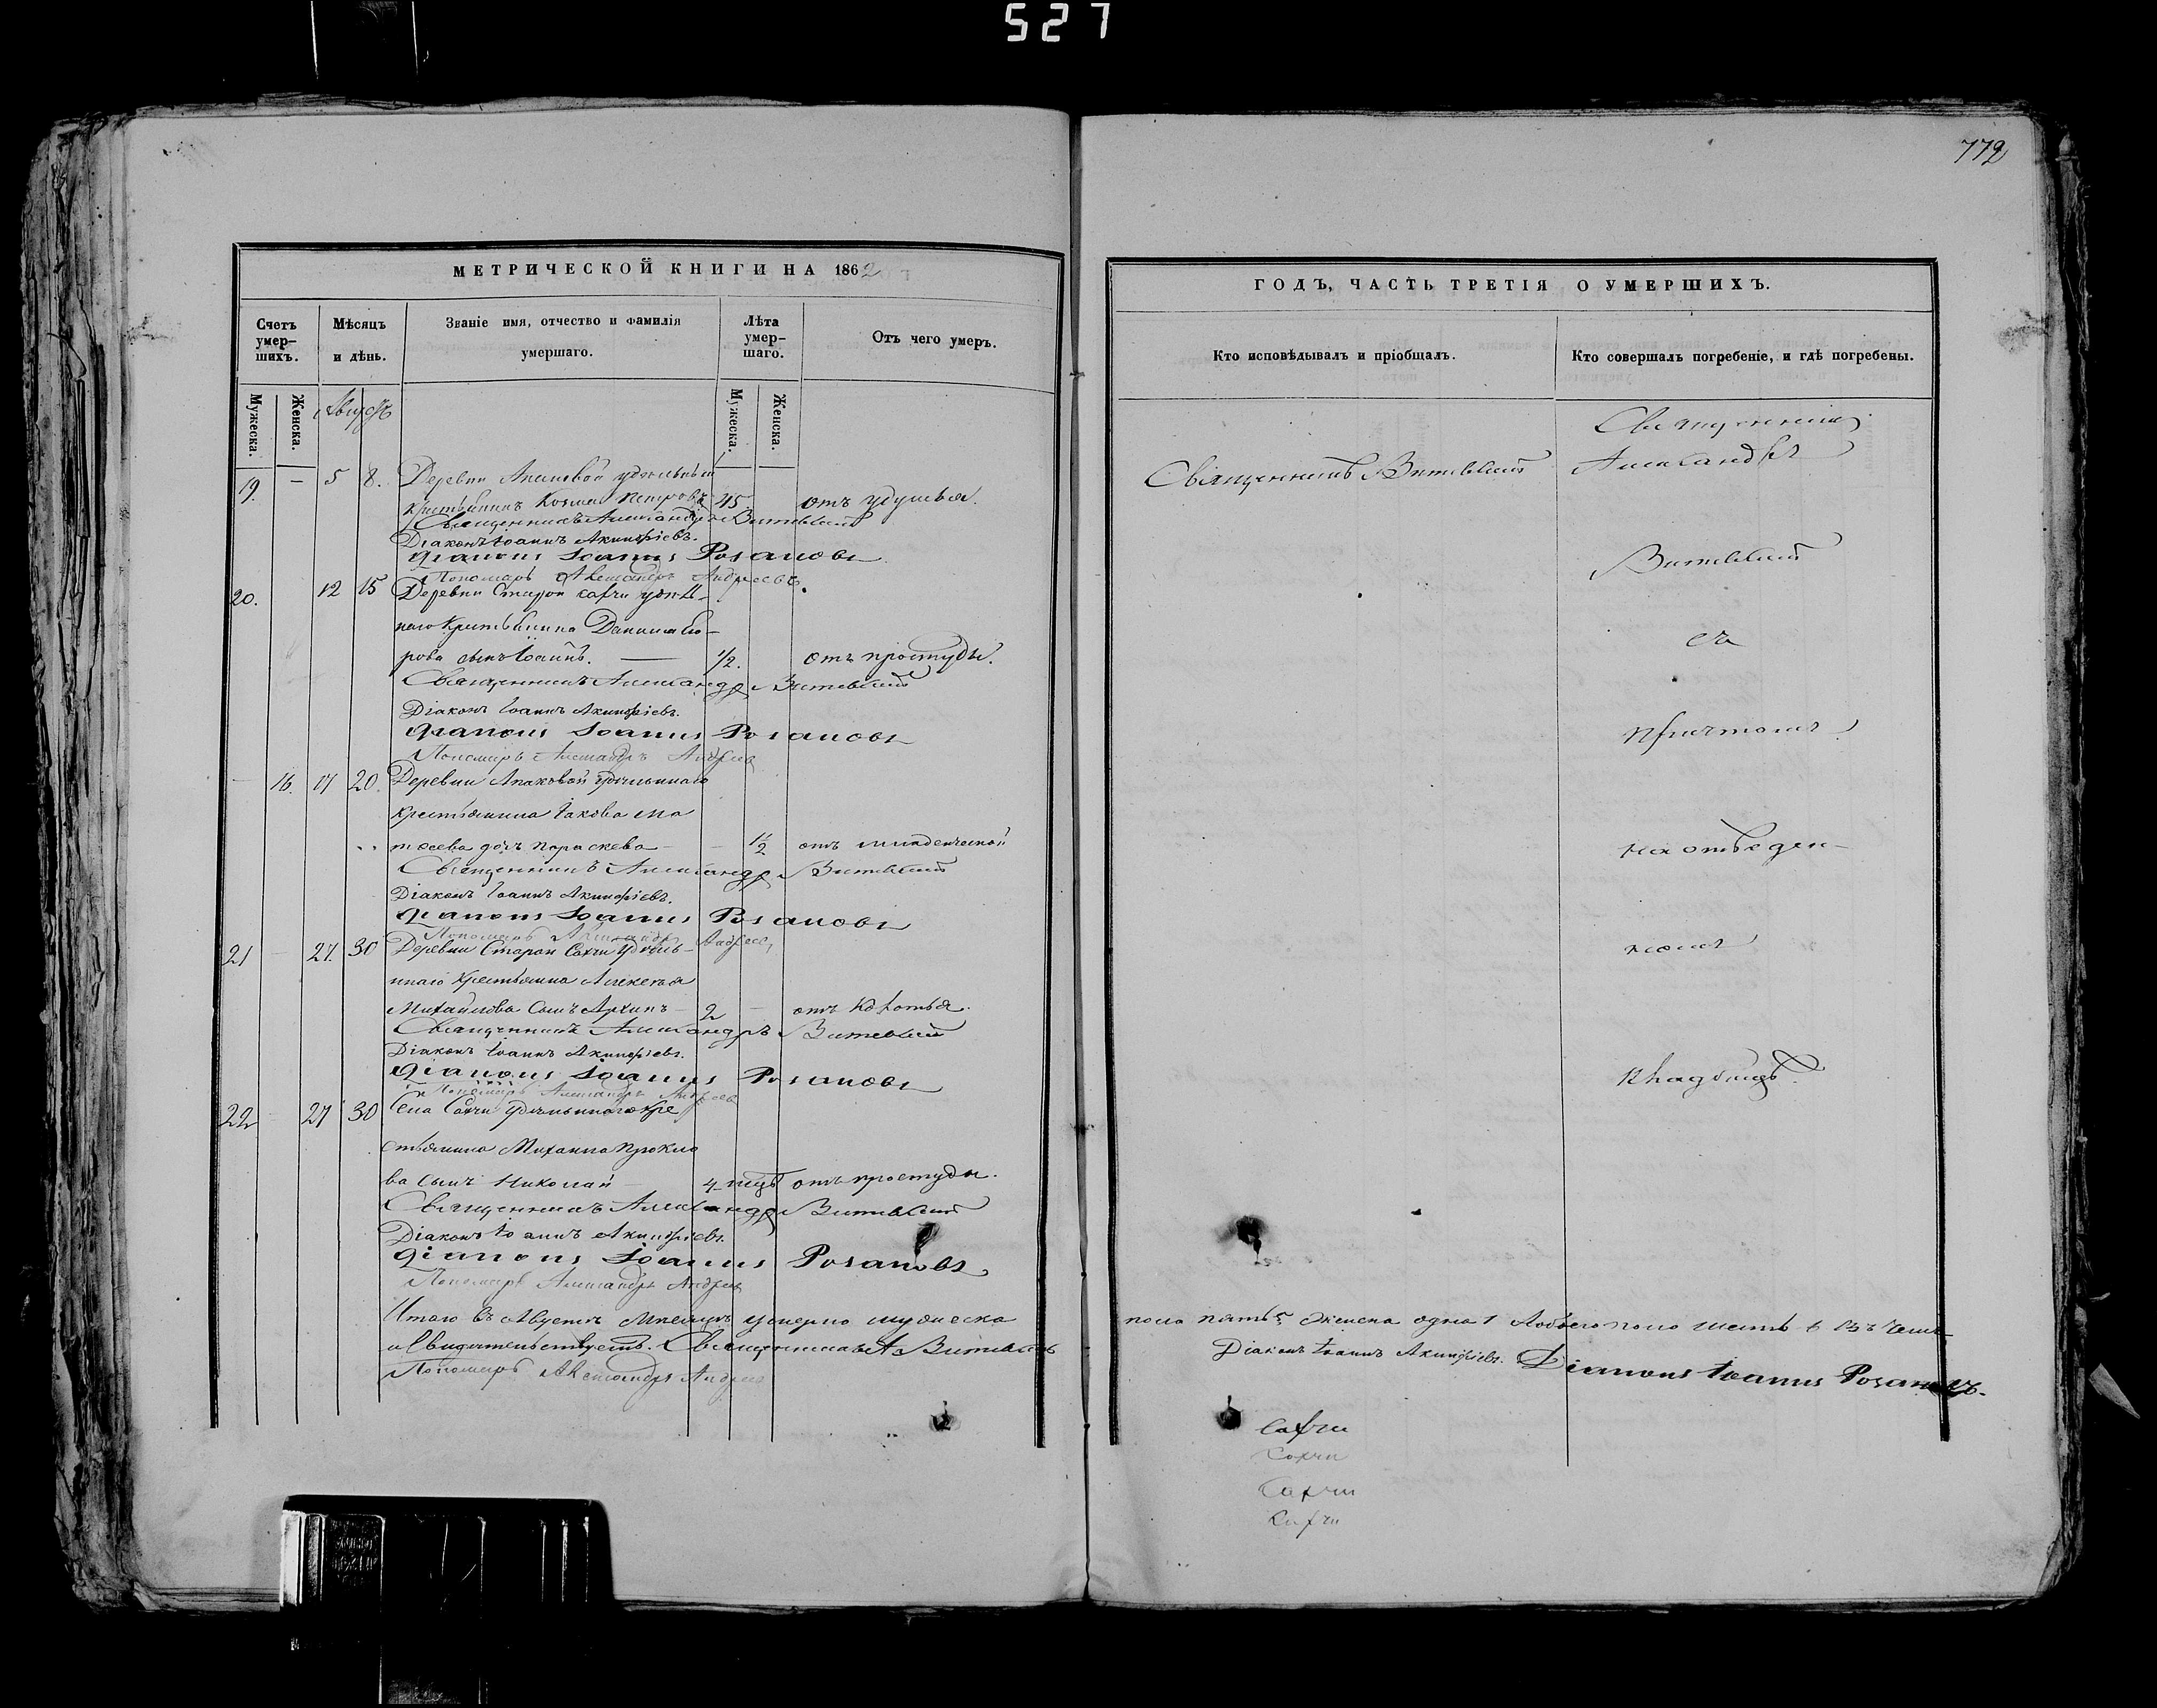 527
772
МЕТРИЧЕСКОЙ КНИГИ НА 1862
Счетъ умер-шихъ.
Мѣсяцъ и дѣнь.
Званіе имя, отчество и фамилія умершаго.
Лѣта умер-шаго.
Отъ чего умеръ.
Мужеска.
Женска.
Августъ
Мужеска.
Женска.
19. — 5 8. Деревни Апаковой удѣльный
крестьянинъ Козма Петровъ 45 отъ удушья.
Священникъ Александръ Витевскій
Діаконъ Іоаннъ Акинфіевъ.
Діаконъ Іоаннъ Розановъ
Пономарь Александръ Андреевъ.
20. 12 15 Деревни Старой Сахчи удѣль-
наго крестьянина Данила Его-
рова сынъ Іоаннъ. — 1/2. отъ простуды.
Священникъ Александръ Витевскій
Діаконъ Іоаннъ Акинфіевъ.
Діаконъ Іоаннъ Розановъ
Пономарь Александръ Андреев
16. 17 20. Деревни Апаковой удѣльнаго
крестьянина Іакова Ма
тѳеева дочь Параскева — 1/2 отъ младенческой
Священникъ Александръ Витевскій
Діаконъ Іоаннъ Акинфіевъ.
Діаконъ Іоаннъ Розановъ
Пономарь Александръ Андреев
21 — 27. 30 Деревни Старой Сахчи удѣль-
наго крестьянина Алексѣя
Михайлова сынъ Архипъ 2 — отъ колотья.
Священникъ Александръ Витевскій
Діаконъ Іоаннъ Акинфіевъ.
Діаконъ Іоаннъ Розановъ
Пономарь Александръ Андреев
22 27 30 Села Сахчи удѣльнаго кре
стьянина Михаила Прокло
ва сынъ Николай 4 отъ простуды.
Священникъ Александръ Витевскій
Діаконъ Іоаннъ Акинфіевъ.
Діаконъ Іоаннъ Розановъ
Пономарь Александръ Андреев
Итого въ Августѣ мѣсяцѣ умерло мужеска
и свидѣтельствуетъ. Священникъ А Витевскій
Пономарь Александръ Андреев
ГОДЪ, ЧАСТЬ ТРЕТІЯ О УМЕРШИХЪ.
Кто исповѣдывалъ и пріобщалъ.
Кто совершалъ погребеніе, и гдѣ погребены.
Священникъ Витевскій
Священникъ
Александръ
Витевскій
съ
причтомъ
на отведен-
номъ
кладбищѣ.
пола пять 5 женска одна 1 Обоего пола шесть 6 Въ чемъ
Діаконъ Іоаннъ Акинфіевъ. Діаконъ Іоаннъ Розановъ.
Сахчи
Сахчи
Сахчи
Сахчи